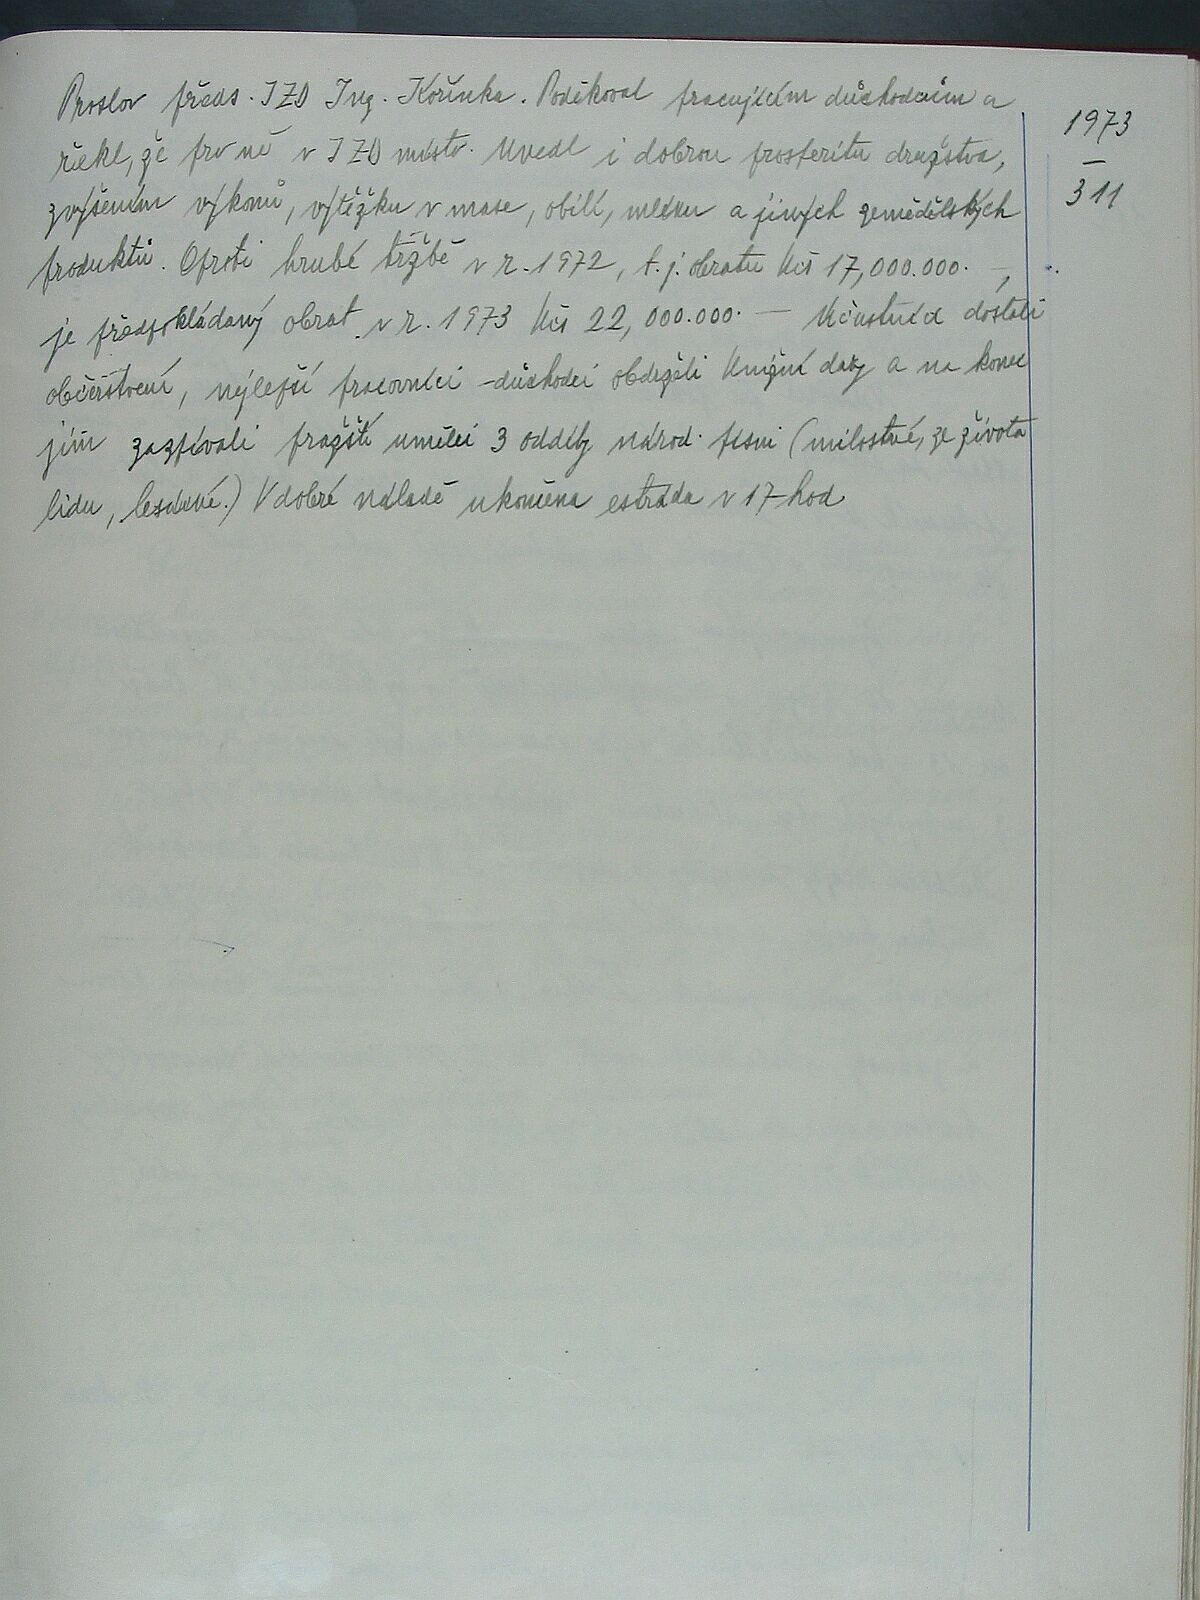 Proslov předs. JZD Ing. Kořínka. Poděkoval pracujícím důchodcům a
řekl, že prvně v JZD místv. Uvedl i dobrou prosperitu družstva,
zvýšením výkonů, výtěžku v mase, obilí, mléku a jiných zemědělských
produktů. Oproti hrubé tržbě v r. 1972, t.j. obratu Kčs 17,000.000.—,
je předpokládaný obrat v r. 1973 Kčs 22,000.000.— Účastníci dostali
občerstvení, nejlepší pracovníci - důchodci obdrželi knižní dary a na konec
jim zazpívali pražští umělci 3 oddíly národ. písní (milostné, ze života
lidu, lesnické.) V dobré náladě ukončena estráda v 17 hod
1973
—
311